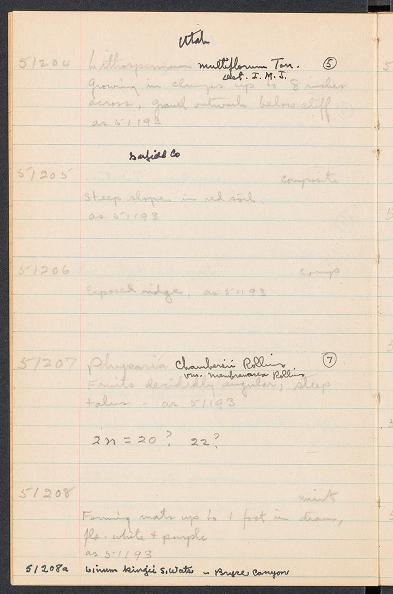 Utah
51204 Lithospermum multiflorum Torr. 5
det. I. M. J.
Growing in clumps up to 8 inches
across, gravel outwash below cliff
as 51193
Garfield Co
51205 composite
Steep slopes in red soil.
as 51193
51206 comp
Exposed ridge, as 51193
51207 Physaria Chambersii Rollins 7
var. membranacea Rollins
Fruits decidedly angular, steep
talus - as 51193
2n = 20? 22?
51208 mint
Forming mats up to 1 foot in diam,
fls. white & purple
as 51193
51208a Linum kingii S. Wats - Bryce Canyon